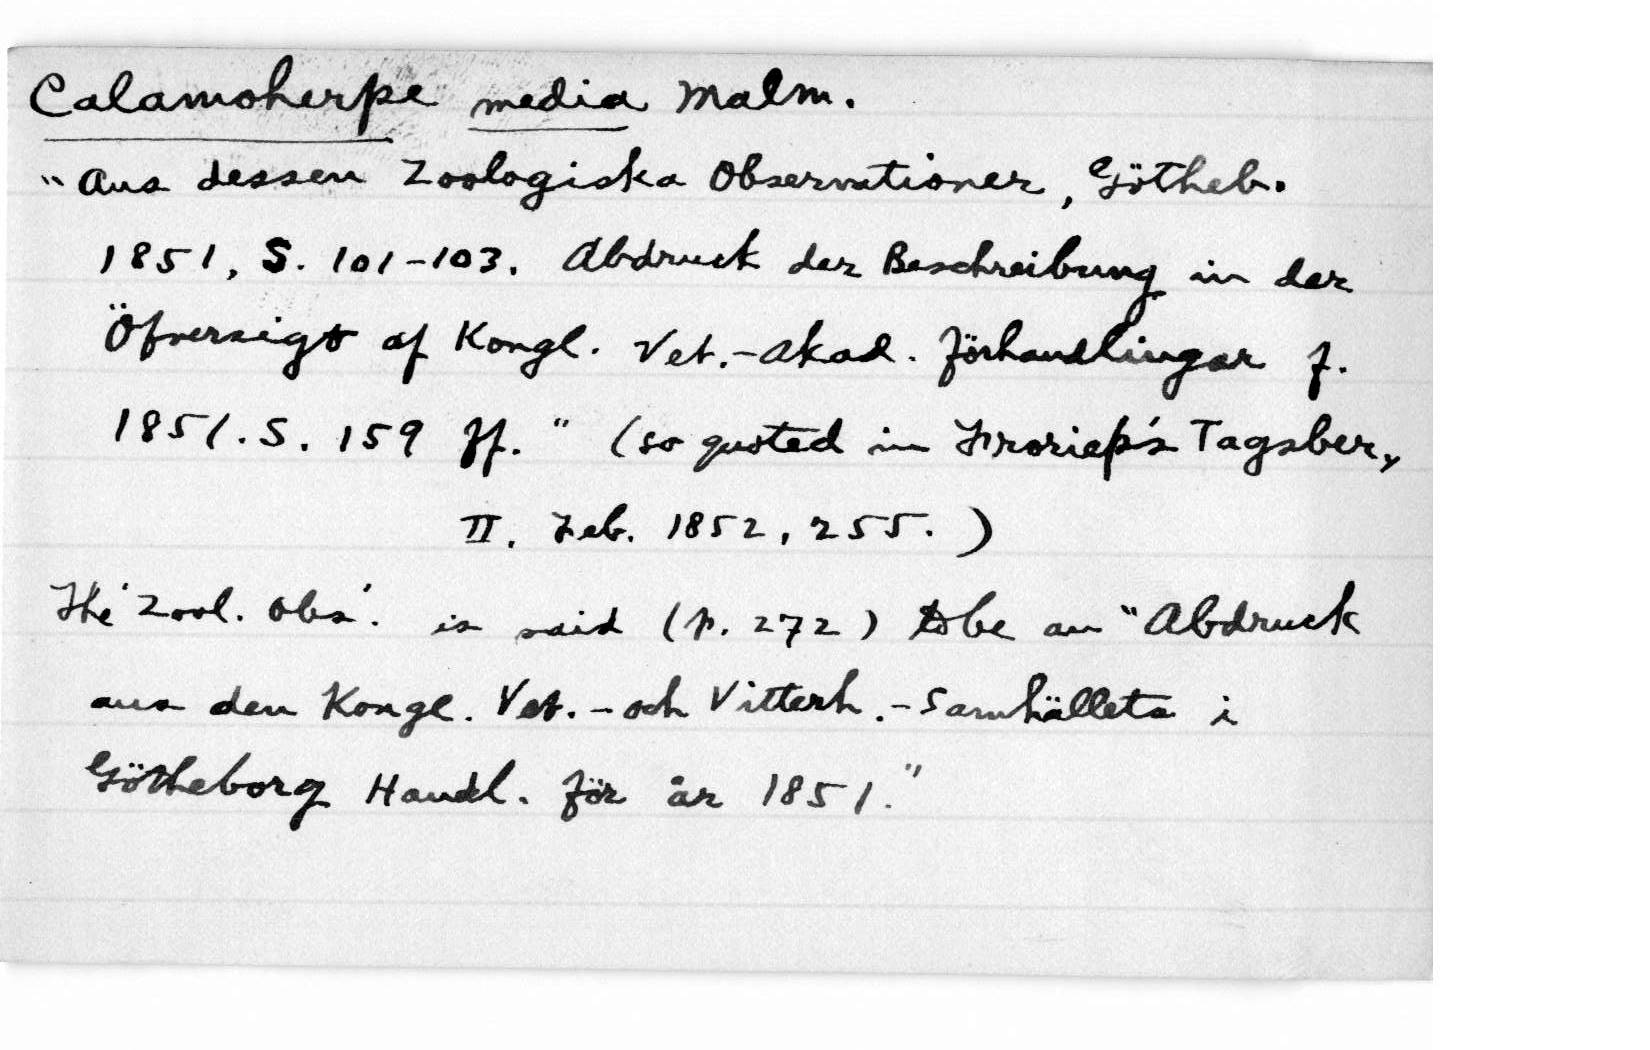 Calamoherpe media Malm.
"Aus dessen Zoologiska Observationer, Götheb.
1851, S. 101-103. Abdruck der Beschreibung in der
Öfversigt af Kongl. Vet.-Akad. förhandlingar f.
1851. S. 159 ff." (so quoted in Froriep's Tagsber.,
II. Feb. 1852, 255.)
The 'Zool. Obs.' is said (p. 272) to be an "Abdruck
aus den Kongl. Vet.- och Vitterh.-Samhällets i
Götheborg Handl. för år 1851."